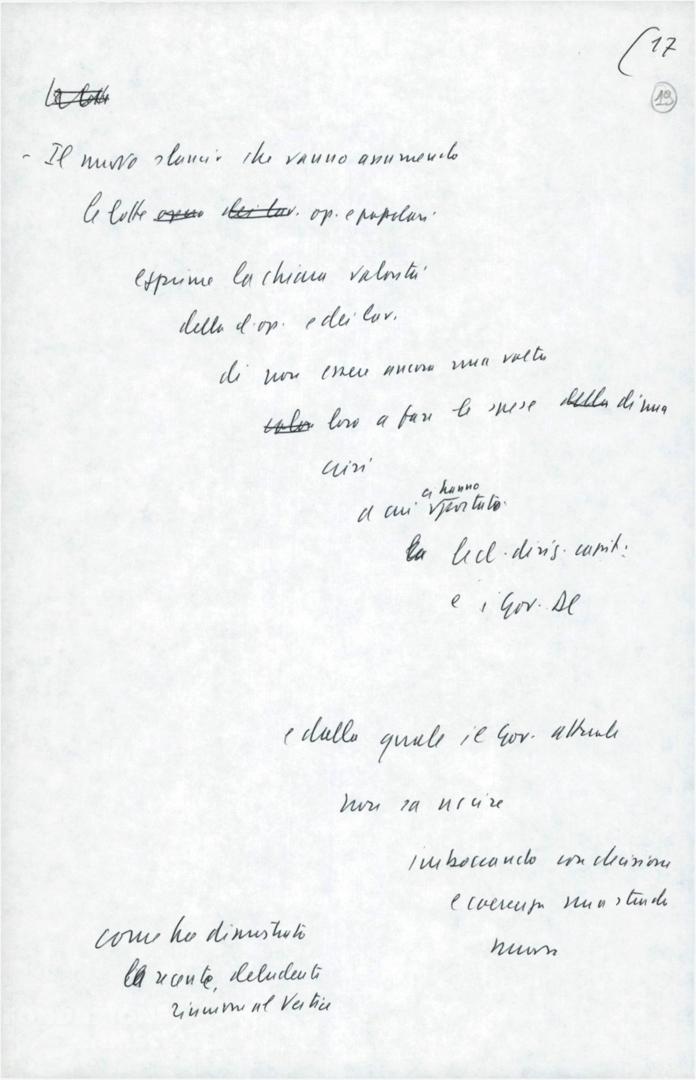 (17
19
La lotta
- Il nuovo slancio che vanno assumendo
le lotte op. e popolari
esprime la chiara volontà
della cl. op. e dei lav.
di non essere ancora una volta
loro a fare le spese della di una
crisi
a cui ci hanno portato
la cl. dirig. capit.
e i Gov. DC
e dalla quale il Gov. attuale
non sa uscire
imboccando con decisione
e coerenza una strada
nuova
come ha dimostrato
la recente, deludente
riunione al vertice